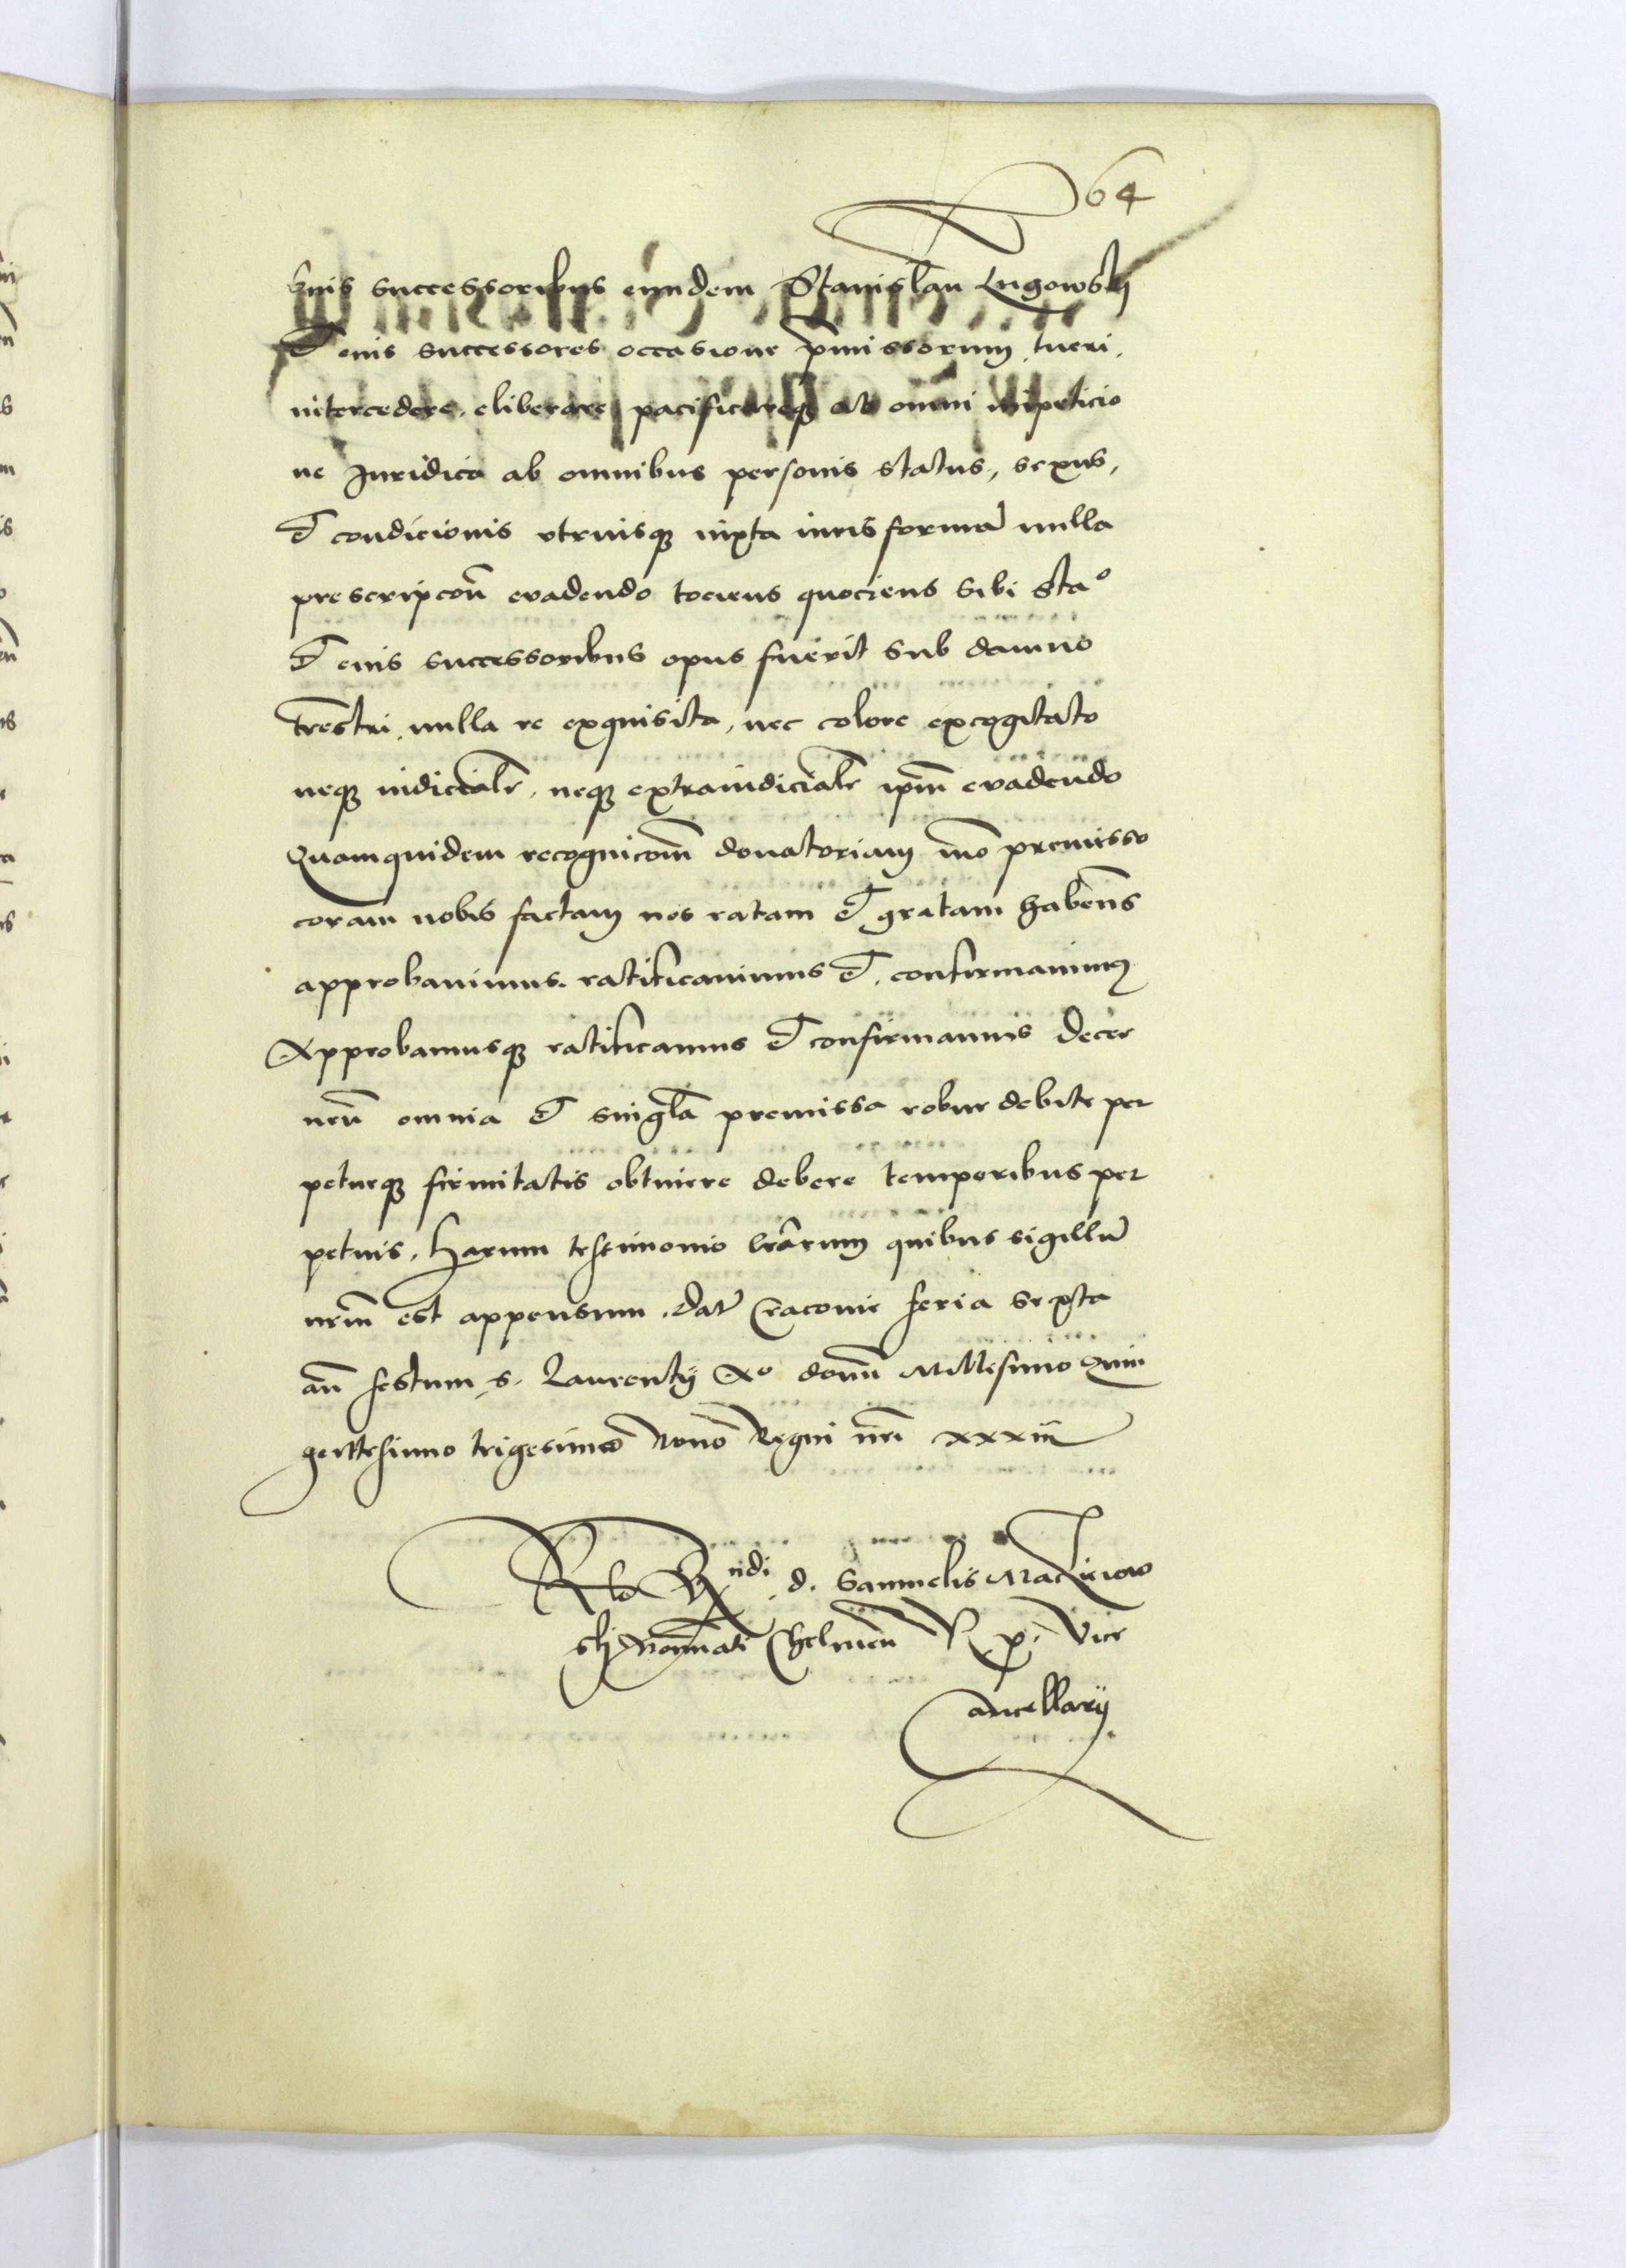 64
suis successoribus eundem Stanislau Lugowskij
et eius successores occasione pmissorum tueri,
intercedere, eliberare pacificareq ab omni impeticio
ne Juridica ab omnibus personis status, sexus,
et condicionis utriusq iuxta iuris formā nulla
prescripcōn evadendo tociens quociens sibi Staᵒ
et eius successoribus opus fuerit sub damno
trēstri, nulla re exquisita, nec colore excogitato
neq iudiciale, neq extraiudiciale ipm̄ evadendo
Quamquidem recognicōm donatoriam mō premisso
coram nobis factam nos ratam et gratam habēns
approbavimus. ratificavimus et confirmavimus
Approbamusq ratificamus et confirmamus Decer
nen̄ omnia et singl̄a premissa robur debite per
petueq firmitatis obtinere debere temporibus per
petuis. Harum testimonio lr̄arum quibus sigillū
nrm̄ est appensum. Dat̄ Cracovie feria sexta
an̄ festum s. Laurentij Aᵒ domī Millesimo Quin
gentesimo trigesimo Nono Regni nrī xxxiii
Rlo Rndi d. Samuelis Macieiow
skj Nominati Chelmen̄ R. p. Vice
Cancellarij